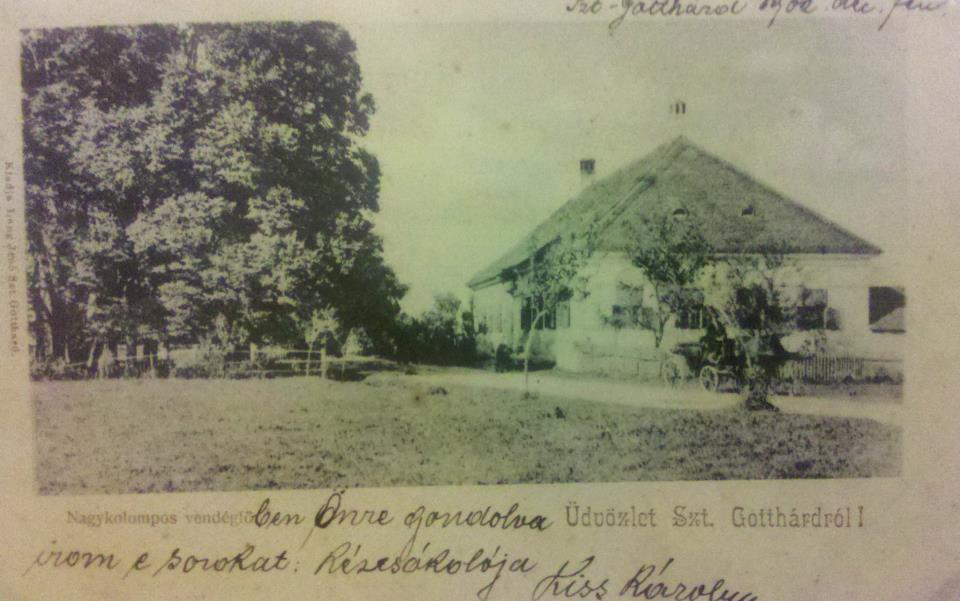 Szt-Gotthárd
Kiadja Lang Jenő Szt. Gotthárd.
Nagykolompos vendéglő ben Önre gondolva Üdvözlet Szt. Gotthárdról!
irom e sorokat: Kézcsókolója
Kiss Károly